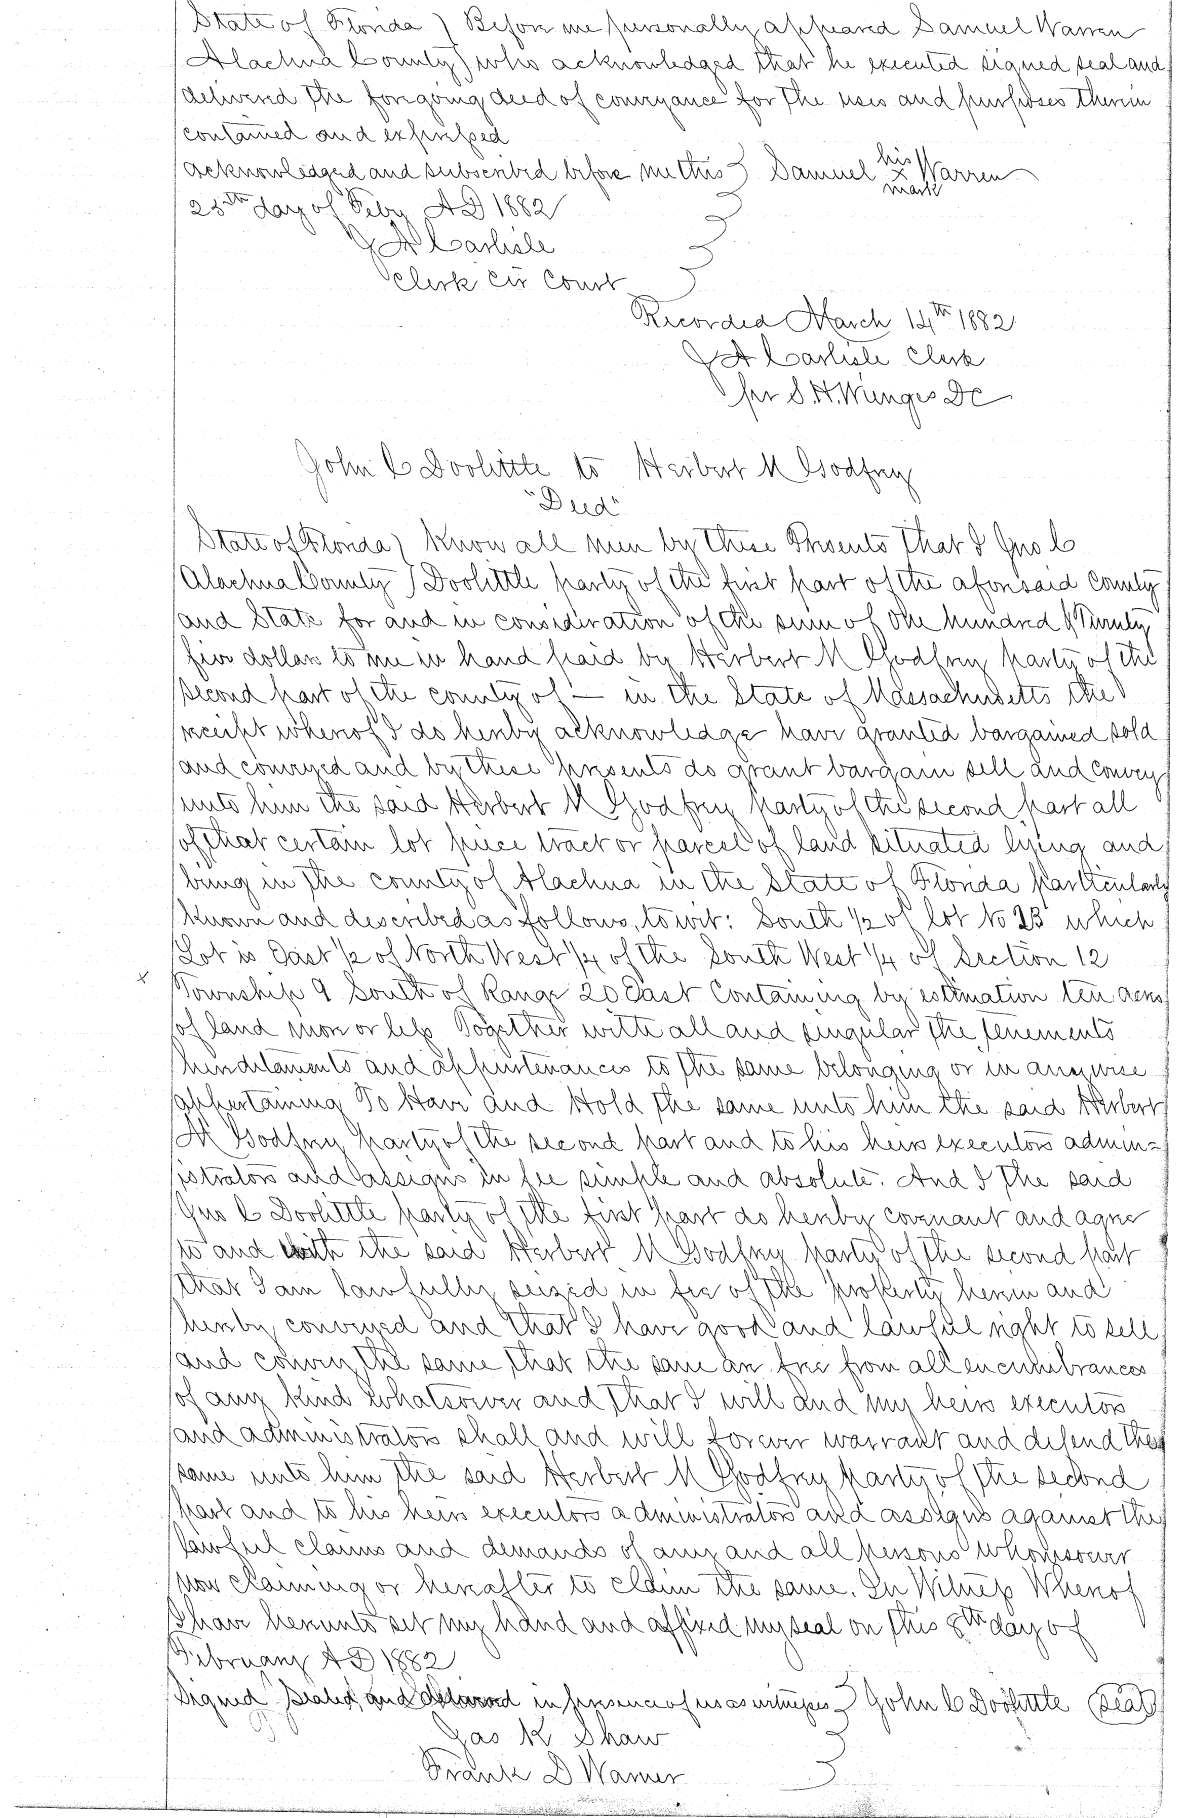 State of Florida ) Before me personally appeared Samuel Warren
Alachua County ) who acknowledged that he executed signed seal and
delivered the foregoing deed of conveyance for the uses and purposes therein
contained and expressed
acknowledged and subscribed before me this } Samuel his x mark Warren
25th day of Feby AD 1882
J A Carlisle
Clerk Cir Court
Recorded March 14th 1882
J A Carlisle Clerk
per S. H. Wienges DC
John C Doolittle to Herbert M Godfrey
"Deed"
State of Florida ) Know all men by these Presents That I Jno C
Alachua County ) Doolittle party of the first part of the aforesaid County
and State for and in consideration of the sum of One hundred & Twenty
five dollars to me in hand paid by Herbert M Godfrey party of the
second part of the county of — in the State of Massachusetts the
receipt whereof I do hereby acknowledge have granted bargained sold
and conveyed and by these presents do grant bargain sell and convey
unto him the said Herbert M Godfrey party of the second part all
of that certain lot piece tract or parcel of land situated lying and
being in the county of Alachua in the State of Florida particularly
known and described as follows, to wit: South 1/2 of lot No 23 which
Lot is East 1/2 of North West 1/4 of the South West 1/4 of Section 12
x Township 9 South of Range 20 East Containing by estimation ten acres
of land more or less Together with all and singular the tenements
hereditaments and appurtenances to the same belonging or in anywise
appertaining To Have and Hold the same unto him the said Herbert
M Godfrey party of the second part and to his heirs executors admin=
istrators and assigns in fee simple and absolute. And I the said
Jno C Doolittle party of the first part do hereby covenant and agree
to and with the said Herbert M Godfrey party of the second part
that I am lawfully seized in fee of the property herein and
hereby conveyed and that I have good and lawful right to sell
and convey the same, that the same are free from all encumbrances
of any kind whatsoever and that I will and my heirs executors
and administrators shall and will forever warrant and defend the
same unto him the said Herbert M Godfrey party of the second
part and to his heirs executors administrators and assigns against the
lawful claims and demands of any and all persons whomsoever
now claiming or hereafter to claim the same. In Witness Whereof
I have hereunto set my hand and affixed my seal on this 8th day of
February AD 1882
Signed Sealed and delivered in presence of us as witnesses } John C Doolittle (seal)
Jas K Shaw
Frank D Warner